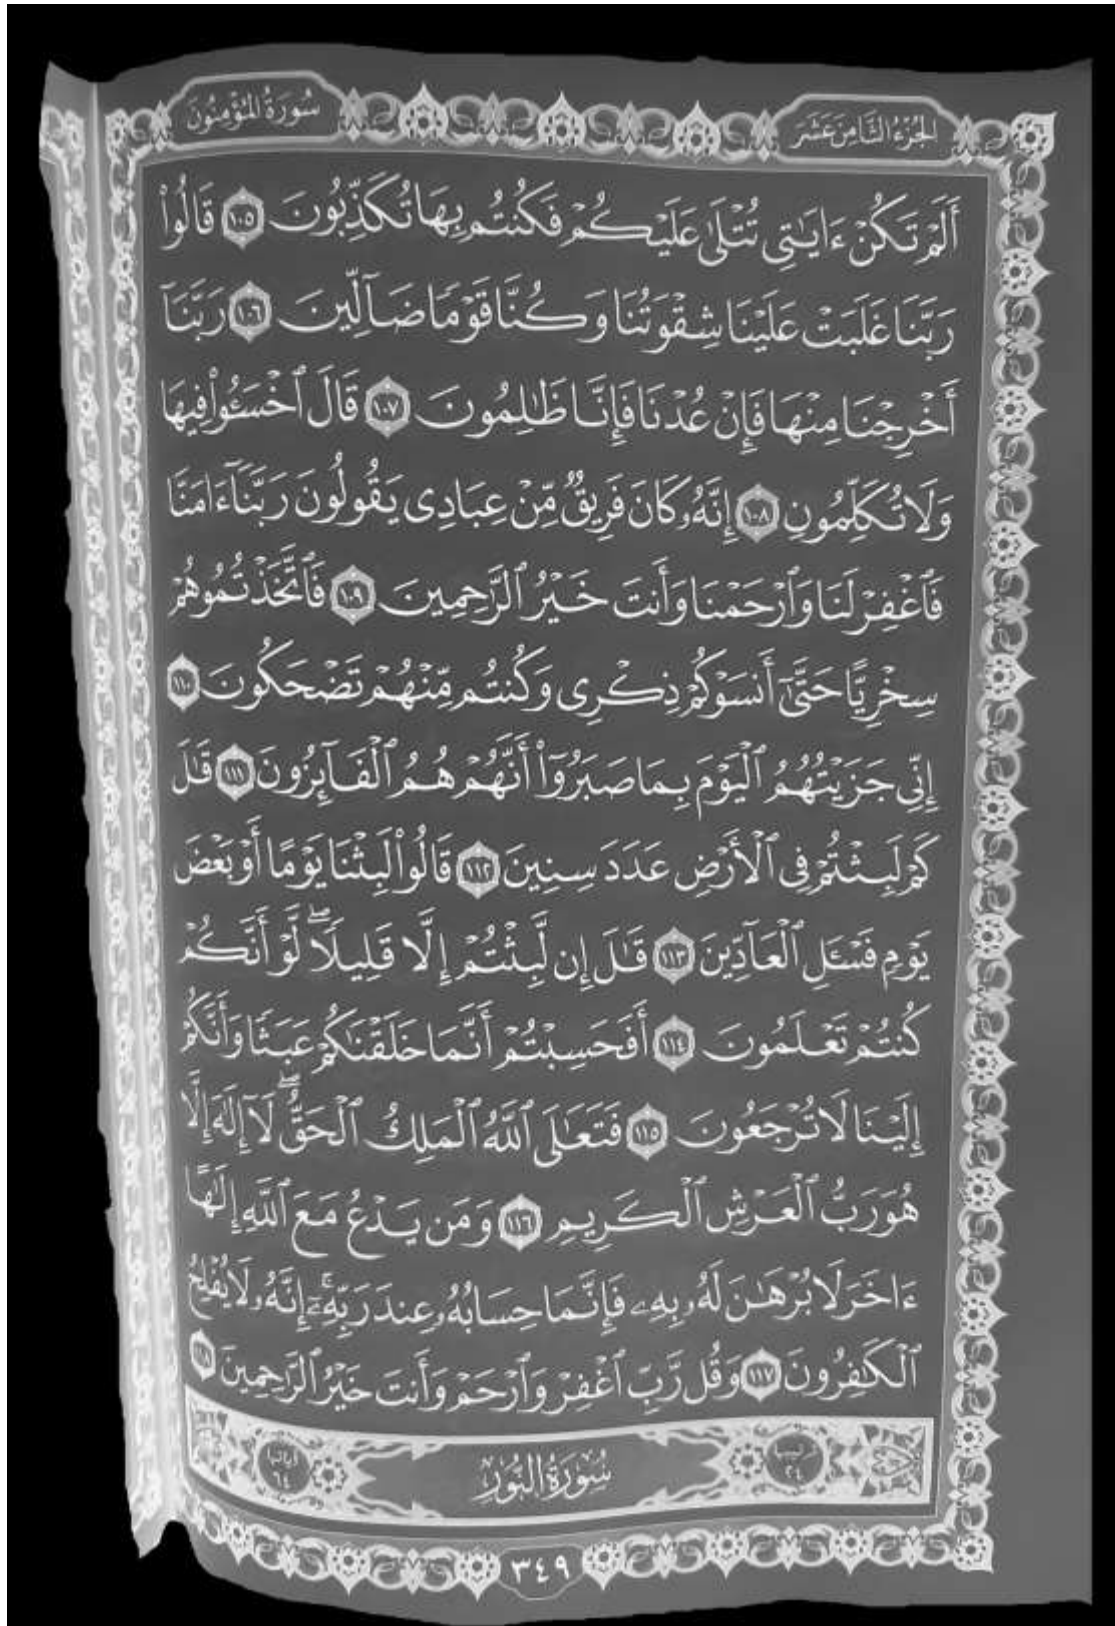 سُورَةُ المُؤْمِنُون
الجُزْءُ الثَّامِنَ عَشَرَ
أَلَمْ تَكُنْ ءَايَٰتِى تُتْلَىٰ عَلَيْكُمْ فَكُنتُم بِهَا تُكَذِّبُونَ ١٠٥ قَالُوا۟
رَبَّنَا غَلَبَتْ عَلَيْنَا شِقْوَتُنَا وَكُنَّا قَوْمًا ضَآلِّينَ ١٠٦ رَبَّنَآ
أَخْرِجْنَا مِنْهَا فَإِنْ عُدْنَا فَإِنَّا ظَٰلِمُونَ ١٠٧ قَالَ ٱخْسَـُٔوا۟ فِيهَا
وَلَا تُكَلِّمُونِ ١٠٨ إِنَّهُۥ كَانَ فَرِيقٌ مِّنْ عِبَادِى يَقُولُونَ رَبَّنَآ ءَامَنَّا
فَٱغْفِرْ لَنَا وَٱرْحَمْنَا وَأَنتَ خَيْرُ ٱلرَّٰحِمِينَ ١٠٩ فَٱتَّخَذْتُمُوهُمْ
سِخْرِيًّا حَتَّىٰٓ أَنسَوْكُمْ ذِكْرِى وَكُنتُم مِّنْهُمْ تَضْحَكُونَ ١١٠
إِنِّى جَزَيْتُهُمُ ٱلْيَوْمَ بِمَا صَبَرُوٓا۟ أَنَّهُمْ هُمُ ٱلْفَآئِزُونَ ١١١ قَٰلَ
كَمْ لَبِثْتُمْ فِى ٱلْأَرْضِ عَدَدَ سِنِينَ ١١٢ قَالُوا۟ لَبِثْنَا يَوْمًا أَوْ بَعْضَ
يَوْمٍ فَسْـَٔلِ ٱلْعَآدِّينَ ١١٣ قَٰلَ إِن لَّبِثْتُمْ إِلَّا قَلِيلًا ۖ لَّوْ أَنَّكُمْ
كُنتُمْ تَعْلَمُونَ ١١٤ أَفَحَسِبْتُمْ أَنَّمَا خَلَقْنَٰكُمْ عَبَثًا وَأَنَّكُمْ
إِلَيْنَا لَا تُرْجَعُونَ ١١٥ فَتَعَٰلَى ٱللَّهُ ٱلْمَلِكُ ٱلْحَقُّ ۖ لَآ إِلَٰهَ إِلَّا
هُوَ رَبُّ ٱلْعَرْشِ ٱلْكَرِيمِ ١١٦ وَمَن يَدْعُ مَعَ ٱللَّهِ إِلَٰهًا
ءَاخَرَ لَا بُرْهَٰنَ لَهُۥ بِهِۦ فَإِنَّمَا حِسَابُهُۥ عِندَ رَبِّهِۦٓ ۚ إِنَّهُۥ لَا يُفْلِحُ
ٱلْكَٰفِرُونَ ١١٧ وَقُل رَّبِّ ٱغْفِرْ وَٱرْحَمْ وَأَنتَ خَيْرُ ٱلرَّٰحِمِينَ ١١٨
ترتيبها ٢٤
سُورَةُ النُّورِ
آياتها ٦٤
٣٤٩